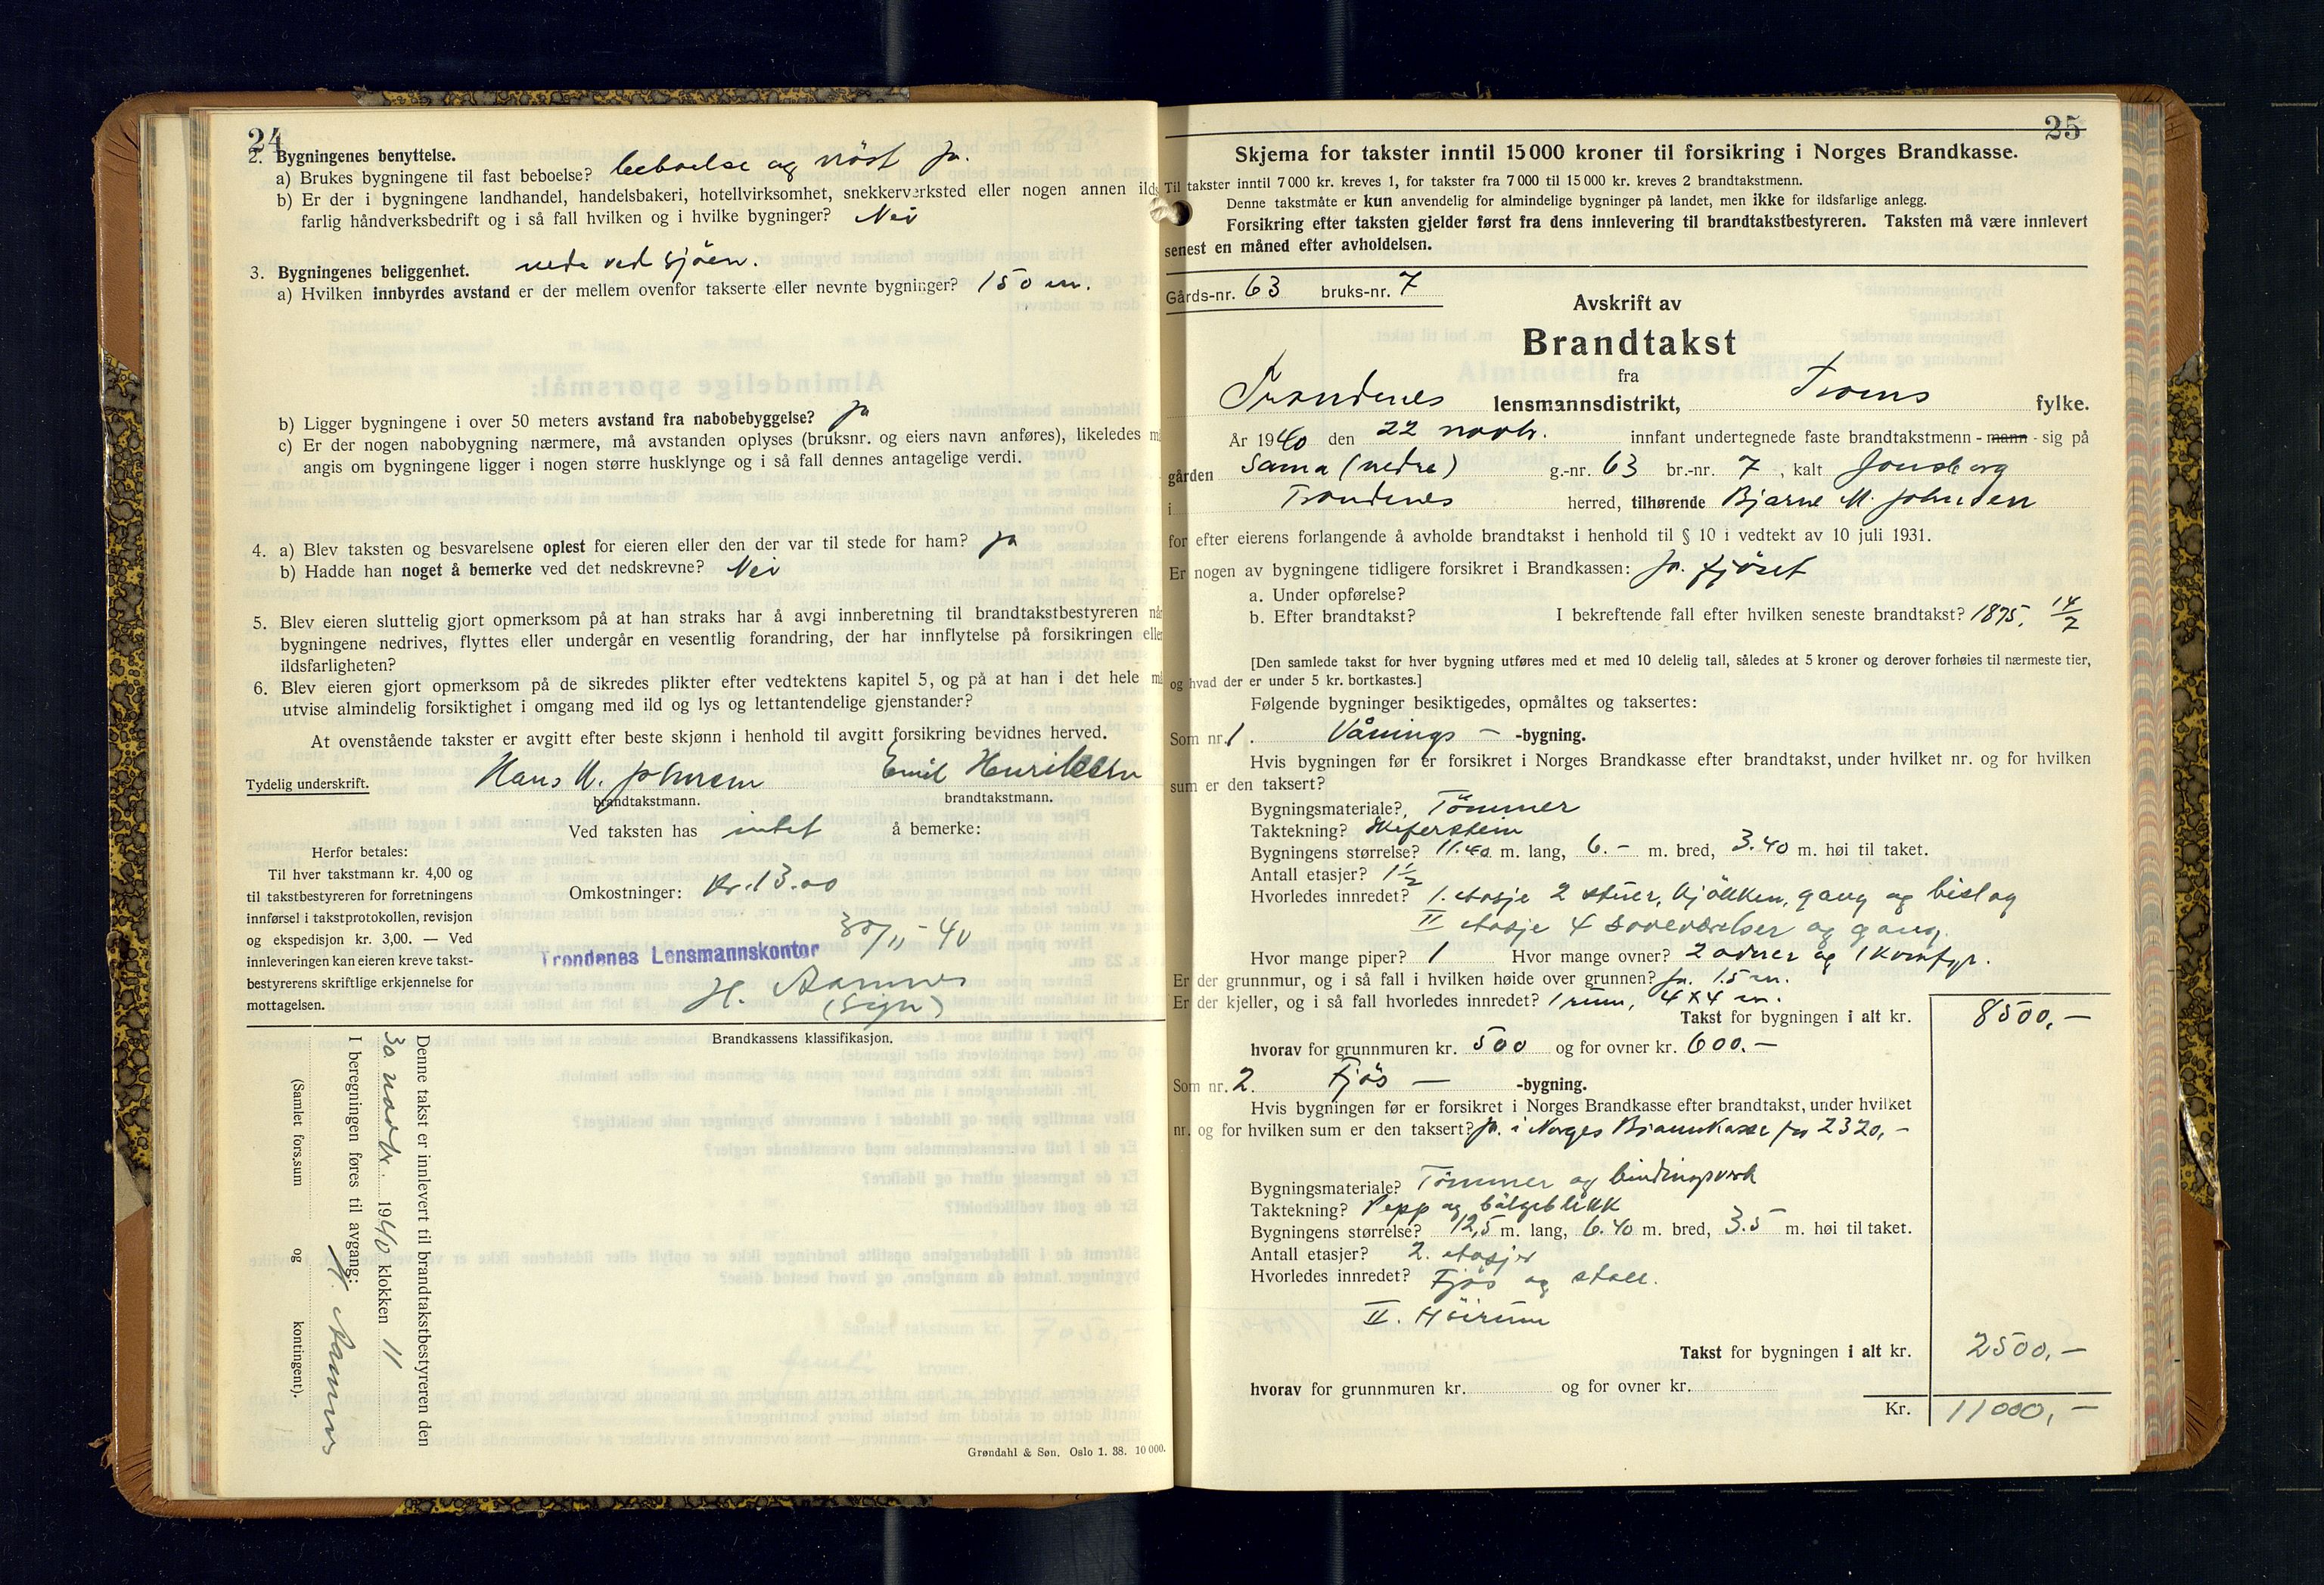 24
2. Bygningenes benyttelse.
a) Brukes bygningene til fast beboelse? beboelse og nöst ja.
b) Er der i bygningene landhandel, handelsbakeri, hotellvirksomhet, snekkerverksted eller nogen annen ilds
farlig håndverksbedrift og i så fall hvilken og i hvilke bygninger? Nei
3. Bygningenes beliggenhet. nede ved sjöen.
a) Hvilken innbyrdes avstand er der mellem ovenfor takserte eller nevnte bygninger? 150 m.
b) Ligger bygningene i over 50 meters avstand fra nabobebyggelse? ja
c) Er der nogen nabobygning nærmere, må avstanden oplyses (bruksnr. og eiers navn anføres), likeledes m
angis om bygningene ligger i nogen større husklynge og i så fall dennes antagelige verdi.
4. a) Blev taksten og besvarelsene oplest for eieren eller den der var til stede for ham? ja
b) Hadde han noget å bemerke ved det nedskrevne? Nei
5. Blev eieren sluttelig gjort opmerksom på at han straks har å avgi innberetning til brandtakstbestyreren når
bygningene nedrives, flyttes eller undergår en vesentlig forandring, der har innflytelse på forsikringen eller
ildsfarligheten?
6. Blev eieren gjort opmerksom på de sikredes plikter efter vedtektens kapitel 5, og på at han i det hele må
utvise almindelig forsiktighet i omgang med ild og lys og lettantendelige gjenstander?
At ovenstående takster er avgitt efter beste skjønn i henhold til avgitt forsikring bevidnes herved.
Tydelig underskrift. Hans M. Johnsen Emil Henriksen
brandtakstmann. brandtakstmann.
Ved taksten has intet å bemerke:
Herfor betales:
Til hver takstmann kr. 4,00 og
til takstbestyreren for forretningens
innførsel i takstprotokollen, revisjon
og ekspedisjon kr. 3,00. — Ved
innleveringen kan eieren kreve takst-
bestyrerens skriftlige erkjennelse for
mottagelsen.
Omkostninger: Kr. 13.00
30/11-40
Trondenes Lensmannskontor
H. Aamnes
(sign)
Brandkassens klassifikasjon.
Denne takst er innlevert til brandtakstbestyreren den
30 novbr. 1940 klokken 11
I beregningen føres til avgang:
H. Aamnes
(Samlet fors.sum og kontingent).
Grøndahl & Søn, Oslo 1. 38. 10 000.
25
Skjema for takster inntil 15 000 kroner til forsikring i Norges Brandkasse.
Til takster inntil 7 000 kr. kreves 1, for takster fra 7 000 til 15 000 kr. kreves 2 brandtakstmenn.
Denne takstmåte er kun anvendelig for almindelige bygninger på landet, men ikke for ildsfarlige anlegg.
Forsikring efter taksten gjelder først fra dens innlevering til brandtakstbestyreren. Taksten må være innlevert
senest en måned efter avholdelsen.
Gårds-nr. 63 bruks-nr. 7
Avskrift av
Brandtakst
fra
Trondenes lensmannsdistrikt, Troms fylke.
År 1940 den 22 novbr. innfant undertegnede faste brandtakstmenn - mann - sig på
gården Sama (nedre) g.-nr. 63 br.-nr. 7, kalt Jonsberg
i Trondenes herred, tilhørende Bjarne M. Johnsen
for efter eierens forlangende å avholde brandtakst i henhold til § 10 i vedtekt av 10 juli 1931.
Er nogen av bygningene tidligere forsikret i Brandkassen: Ja. fjöset
a. Under opførelse?
b. Efter brandtakst? I bekreftende fall efter hvilken seneste brandtakst? 1895. 14/7
[Den samlede takst for hver bygning utføres med et med 10 delelig tall, således at 5 kroner og derover forhøies til nærmeste tier,
og hvad der er under 5 kr. bortkastes.]
Følgende bygninger besiktigedes, opmåltes og taksertes:
Som nr. 1. Vånings — -bygning.
Hvis bygningen før er forsikret i Norges Brandkasse efter brandtakst, under hvilket nr. og for hvilken
sum er den taksert?
Bygningsmateriale? Tömmer
Taktekning? Skiferstein
Bygningens størrelse? 11.40 m. lang, 6.- m. bred, 3.40 m. høi til taket.
Antall etasjer? 1½
Hvorledes innredet? 1. etasje 2 stuer, kjökken, gang og bislag
II etasje 4 soveværelser og gang.
Hvor mange piper? 1 Hvor mange ovner? 2 ovner og 1 komfyr.
Er der grunnmur, og i så fall i hvilken høide over grunnen? Ja. 1.5 m.
Er der kjeller, og i så fall hvorledes innredet? 1 rum, 4 x 4 m.
Takst for bygningen i alt kr. 8500,—
hvorav for grunnmuren kr. 500 og for ovner kr. 600.—
Som nr. 2. Fjös — -bygning.
Hvis bygningen før er forsikret i Norges Brandkasse efter brandtakst, under hvilket
nr. og for hvilken sum er den taksert? Ja. i Norges Brannkasse for 2320,-
Bygningsmateriale? Tömmer og bindingsverk
Taktekning? Papp og bölgeblikk
Bygningens størrelse? 12,5 m. lang, 6.40 m. bred, 3.5 m. høi til taket.
Antall etasjer? 2. etasjer
Hvorledes innredet? Fjös og stall.
II. Höirum
Takst for bygningen i alt kr. 2500,—
hvorav for grunnmuren kr. og for ovner kr.
Kr. 11000,—